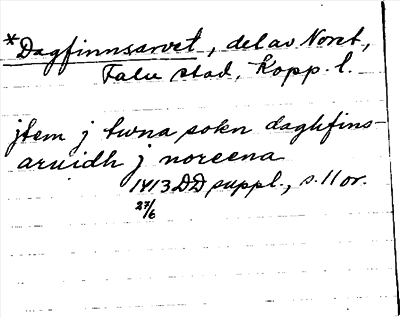 *Dagfinnsarvet, del av Noret,
Falu stad, Kopp. l.
jtem j twna sokn daghfins-
aruidh j noreena
1413 DD suppl., s. 11 or.
27/6